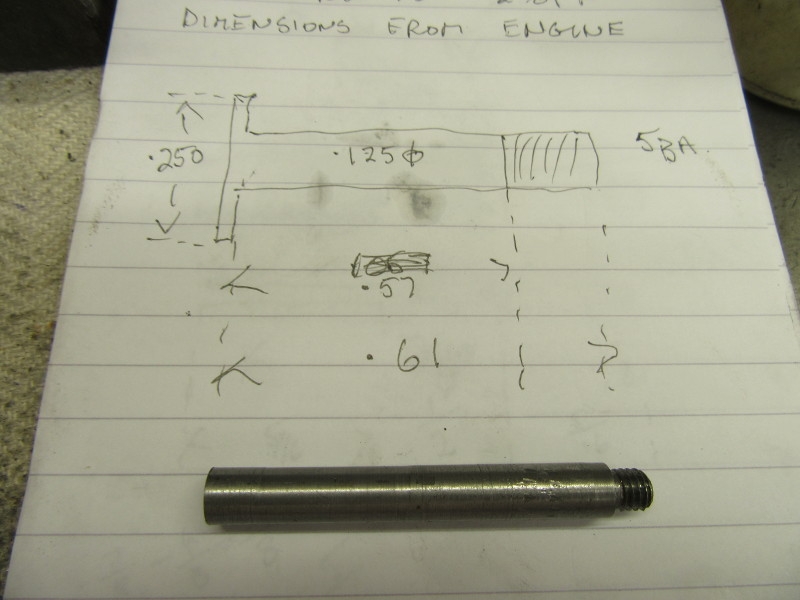 DIMENSIONS FROM ENGINE
.250
.125φ
5BA.
.57
.61